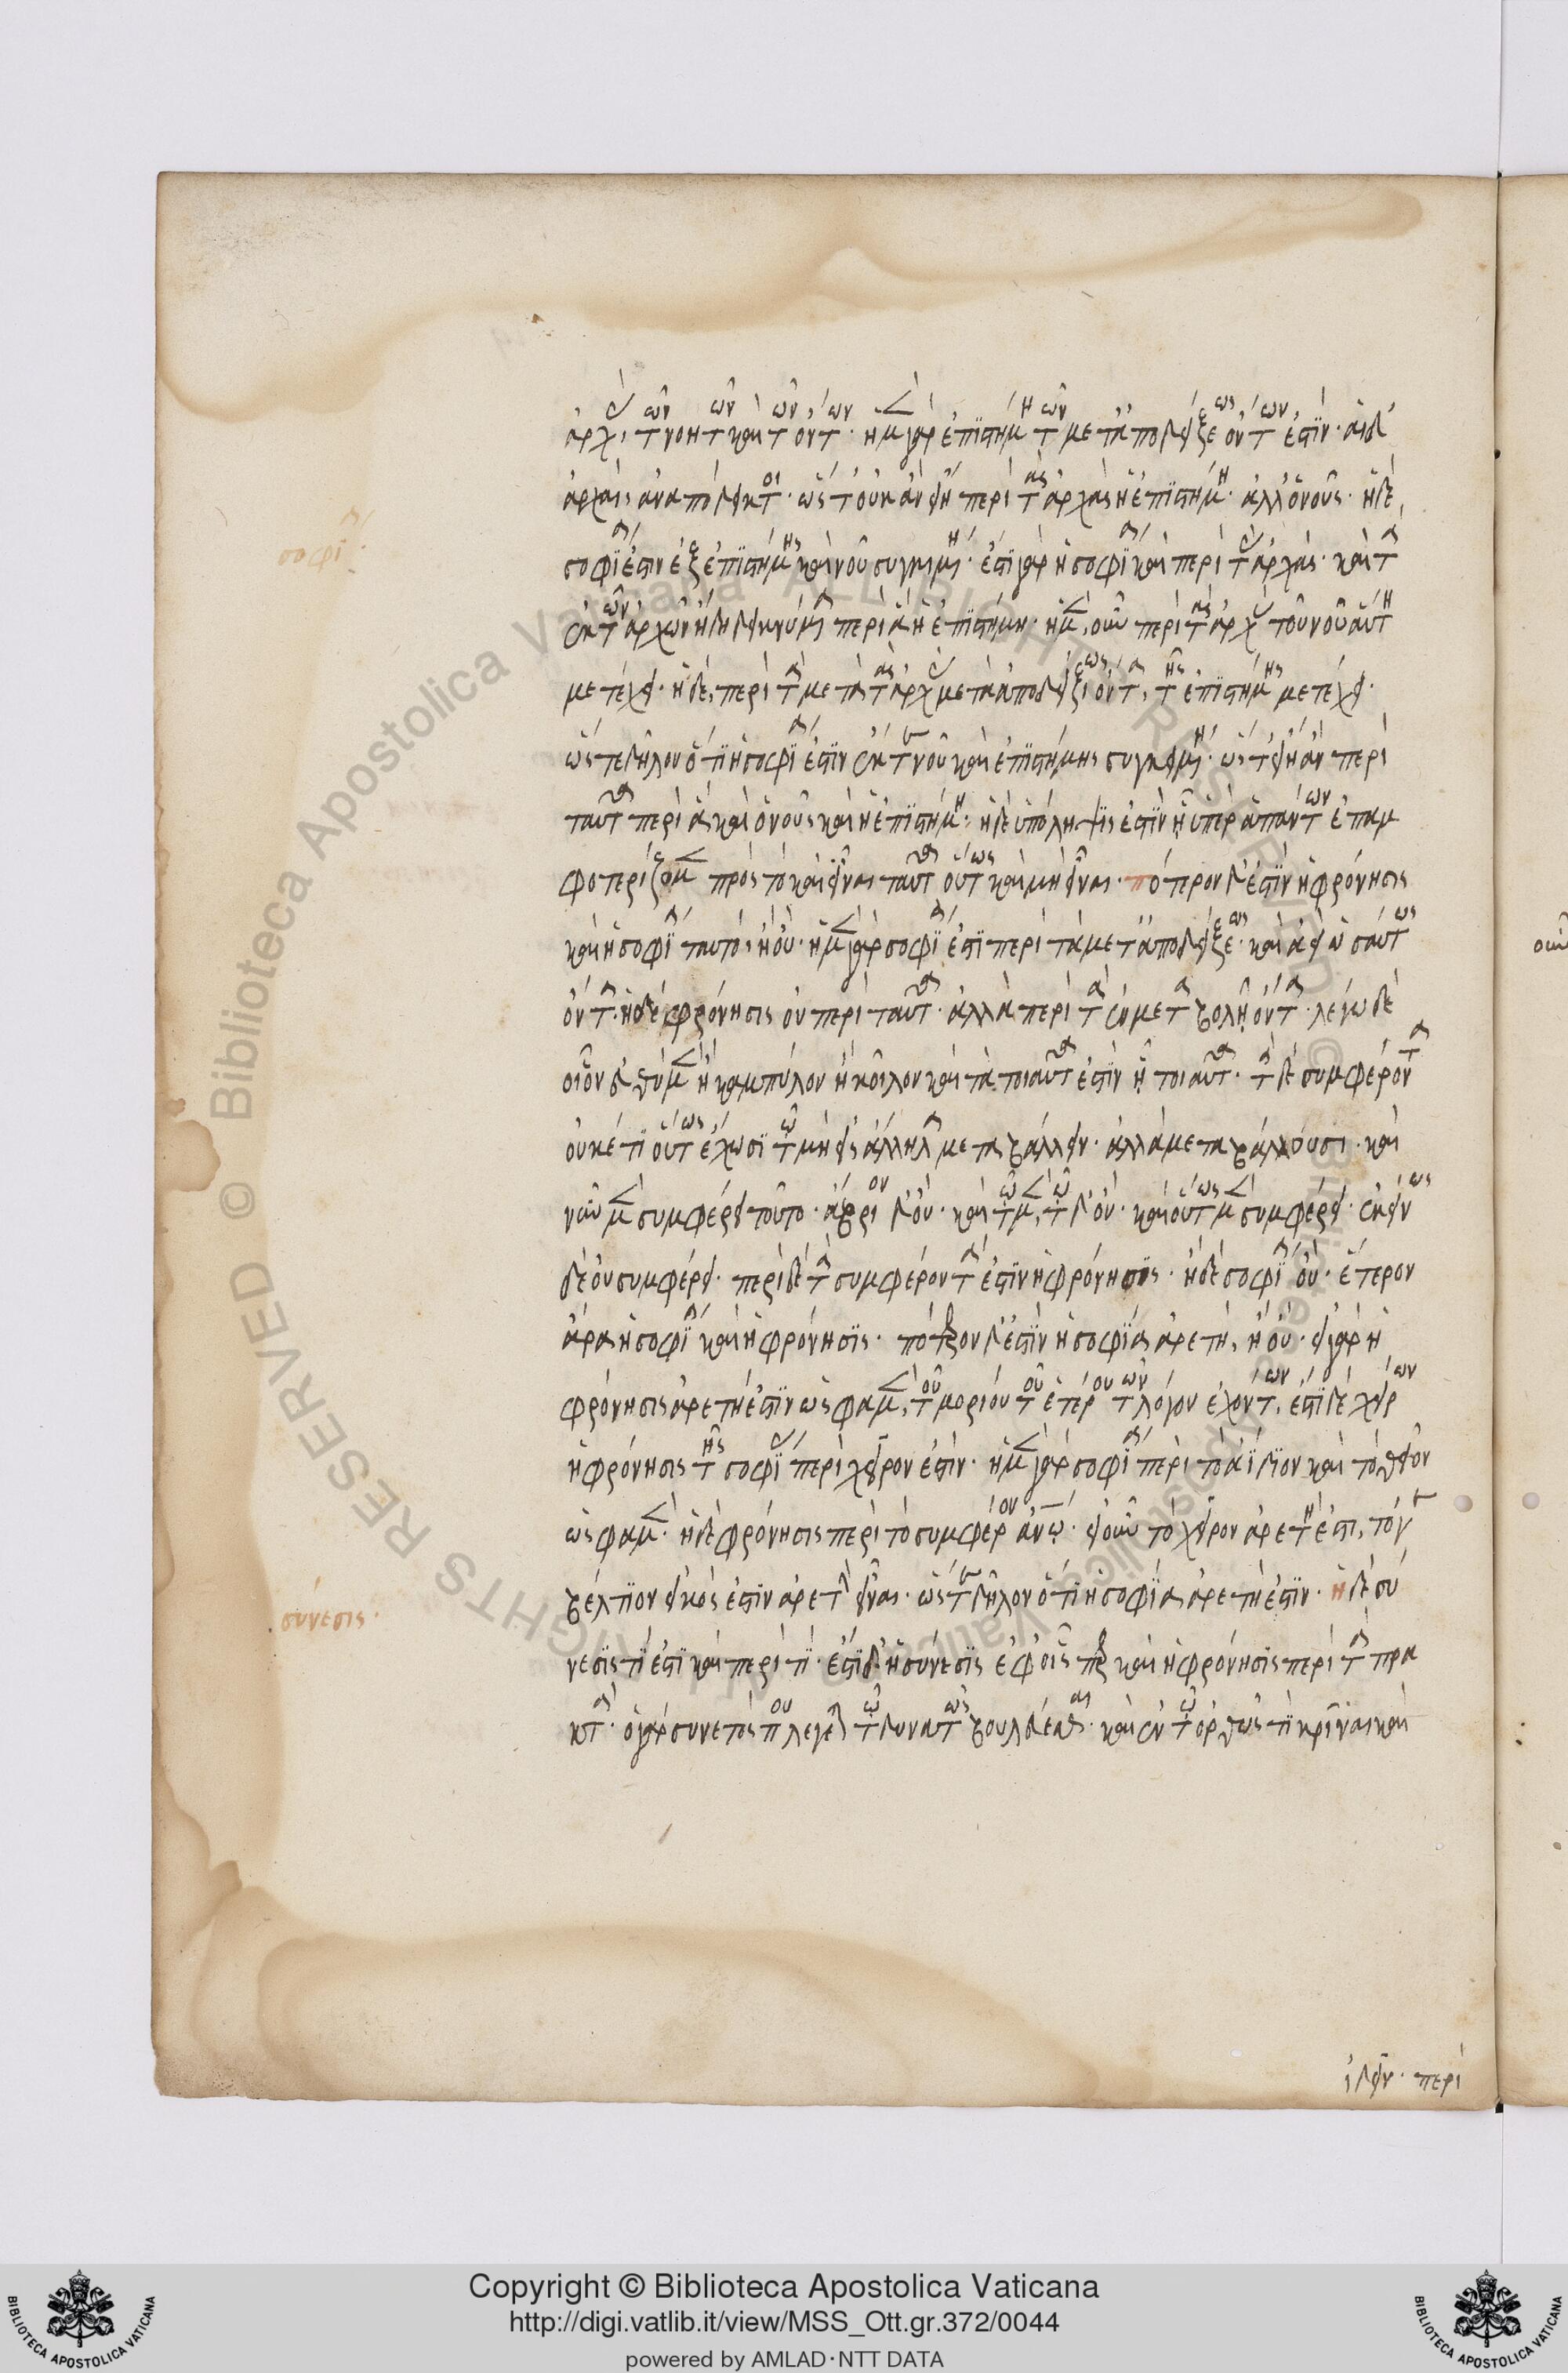 ἀρχὰς τῶν νοητῶν καὶ τῶν ὄντων· ἡ μὲν γὰρ ἐπιστήμη τῶν μετ' ἀποδείξεως ὄντων ἐστίν· αἱ δ'
ἀρχαὶ ἀναπόδεικτοι· ὥστ' οὐκ ἂν εἴη περὶ τὰς ἀρχὰς ἡ ἐπιστήμη· ἀλλ' ὁ νοῦς· ἡ δὲ
σοφία ἐστιν ἐξ ἐπιστήμης καὶ νοῦ συγκειμένη· ἔστι γὰρ ἡ σοφία καὶ περὶ τὰς ἀρχάς· καὶ τὰ
ἐκ τῶν ἀρχῶν ἤδη δεικνύμενα περὶ ἃ ἡ ἐπιστήμη· ἡ μὲν οὖν περὶ τὰς ἀρχὰς τοῦ νοῦ αὐτὴ
μετέχει· ἡ δὲ περὶ τὰ μετὰ τὰς ἀρχὰς μετὰ ἀποδείξεως ὄντα, τῆς ἐπιστήμης μετέχει·
ὥστε δῆλον ὅτι ἡ σοφία ἐστὶν ἔκ τε νοῦ καὶ ἐπιστήμης συγκειμένη· ὥστ' εἴη ἂν περὶ
ταῦτα περὶ ἃ καὶ ὁ νοῦς καὶ ἡ ἐπιστήμη· ἡ δὲ ὑπόληψις ἐστὶν ᾗ ὑπὲρ ἁπάντων ἐπαμ
φοτερίζομεν πρὸς τὸ καὶ εἶναι ταῦτα οὕτως καὶ μὴ εἶναι· πότερον δ' ἐστὶν ἡ φρόνησις
καὶ ἡ σοφία ταυτὸ, ἢ οὔ· ἡ μὲν γὰρ σοφία ἐστὶ περὶ τὰ μετ' ἀποδείξεως· καὶ ἀεὶ ὡσαύτως
ὄντα· ἡ δὲ φρόνησις οὐ περὶ ταῦτα· ἀλλὰ περὶ τὰ ἐν μεταβολῇ ὄντα· λέγω δὲ
οἷον εὐθὺ μὲν ἢ καμπύλον ἢ κοῖλον καὶ τὰ τοιαῦτα ἐστὶν ᾗ τοιαῦτα· τὰ δὲ συμφέροντα
οὐκέτι οὕτως ἔχωσι τῷ μὴ εἰς ἄλληλα μεταβάλλειν· ἀλλὰ μεταβάλλουσι· καὶ
νῦν μὲν συμφέρει τοῦτο· αὔριον δ' οὔ· καὶ τῷ μὲν, τῷ δ' οὔ· καὶ οὕτως μὲν συμφέρει· ἐκείνως
δὲ οὐ συμφέρει· περὶ δὲ τὰ συμφέροντά ἐστιν ἡ φρόνησις· ἡ δὲ σοφία οὔ· ἕτερον
ἄρα ἡ σοφία καὶ ἡ φρόνησις· πότερον δ' ἐστὶν ἡ σοφία ἀρετὴ, ἢ οὔ· εἰ γὰρ ἡ
φρόνησις ἀρετή ἐστιν ὥς φαμεν, τοῦ μορίου τοῦ ἑτέρου τῶν λόγον ἐχόντων, ἔστι δὲ χείρων
ἡ φρόνησις τῆς σοφίας περὶ χεῖρον ἐστίν· ἡ μὲν γὰρ σοφία περὶ τὸ ἀΐδιον καὶ τὸ θεῖον
ὥς φαμεν· ἡ δὲ φρόνησις περὶ τὸ συμφέρον ἀνθρώπῳ· εἰ οὖν τὸ χεῖρον ἀρετή ἐστι, τό γε
βέλτιον εἰκός ἐστιν ἀρετὴν εἶναι· ὥστε δῆλον ὅτι ἡ σοφία ἀρετή ἐστιν· ἡ δὲ σύ
νεσις τί ἐστι καὶ περὶ τί· ἔστι δ' ἡ σύνεσις ἐφ' οἷς περ καὶ ἡ φρόνησις περὶ τὰ πρα
κτά· ὁ γὰρ συνετός που λέγεται τῷ δυνατὸς βουλεύεσθαι· καὶ ἐν τῷ ὀρθῶς τι κρῖναι καὶ
σοφία·
σύνεσις·
ἰδεῖν· περὶ
Copyright © Biblioteca Apostolica Vaticana
http://digi.vatlib.it/view/MSS_Ott.gr.372/0044
powered by AMLAD·NTT DATA